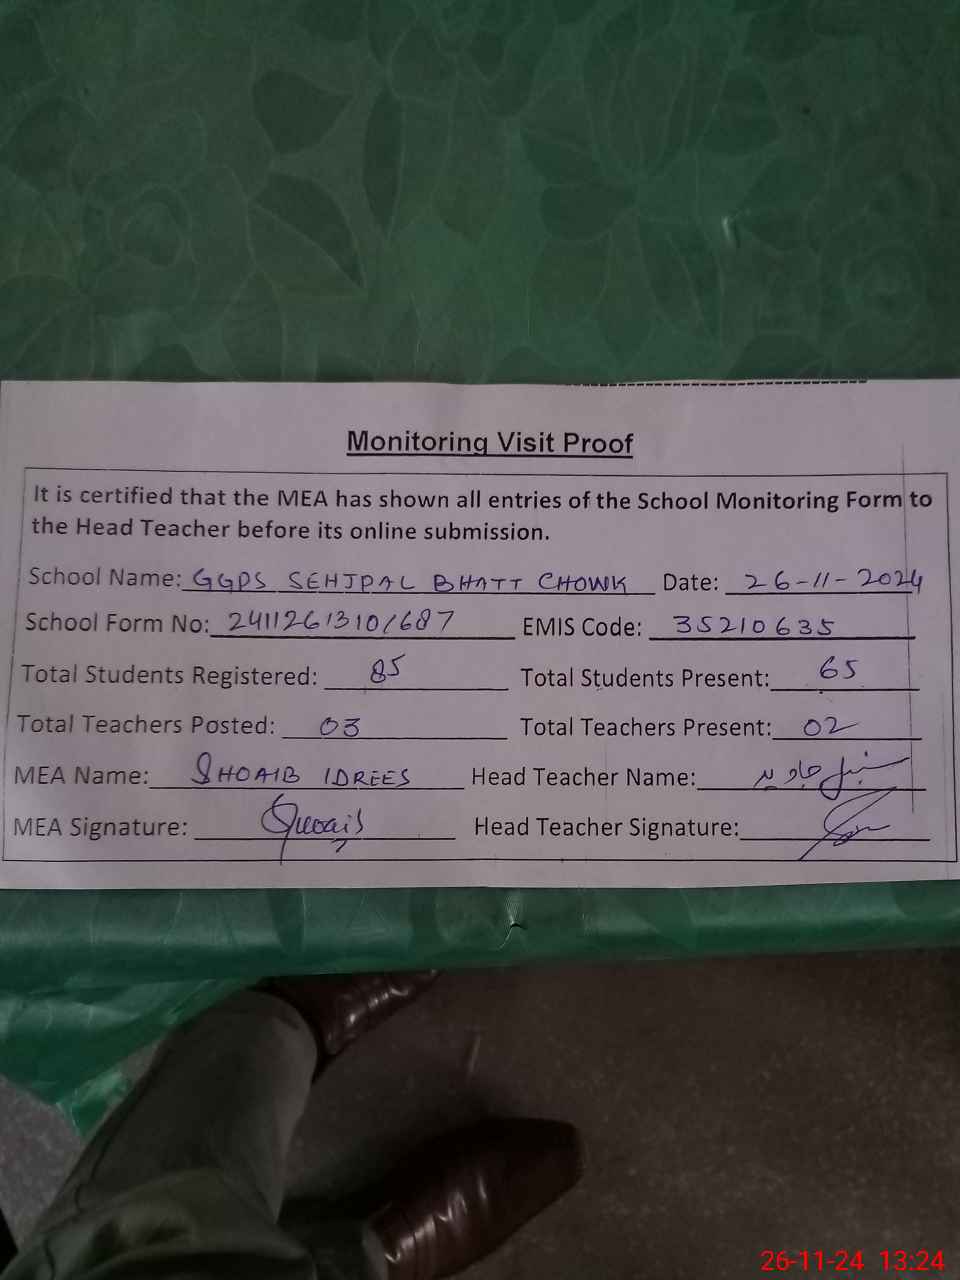 Monitoring Visit Proof
It is certified that the MEA has shown all entries of the School Monitoring Form to
the Head Teacher before its online submission.
School Name: GGPS SEHJPAL BHATT CHOWK Date: 26-11-2024
School Form No: 24112613101687 EMIS Code: 35210635
Total Students Registered: 85 Total Students Present: 65
Total Teachers Posted: 03 Total Teachers Present: 02
MEA Name: SHOAIB IDREES Head Teacher Name: سنبل جاوید
MEA Signature: Shoaib Head Teacher Signature:
26-11-24 13:24